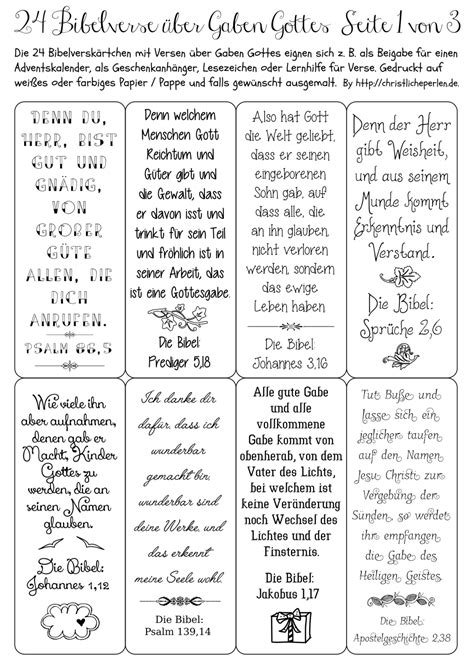 24 Bibelverse über Gaben Gottes Seite 1 von 3
Die 24 Bibelverskärtchen mit Versen über Gaben Gottes eignen sich z. B. als Beigabe für einen
Adventskalender, als Geschenkanhänger, Lesezeichen oder Lernhilfe für Verse. Gedruckt auf
weißes oder farbiges Papier / Pappe und falls gewünscht ausgemalt. By http://christlicheperlen.de.
DENN DU,
HERR, BIST
GUT UND
GNÄDIG,
VON
GROßER
GÜTE
ALLEN, DIE
DICH
ANRUFEN.
PSALM 86,5
Denn welchem
Menschen Gott
Reichtum und
Güter gibt und
die Gewalt, dass
er davon isst und
trinkt für sein Teil
und fröhlich ist in
seiner Arbeit, das
ist eine Gottesgabe.
Die Bibel:
Prediger 5,18
Also hat Gott
die Welt geliebt,
dass er seinen
eingeborenen
Sohn gab, auf
dass alle, die
an ihn glauben,
nicht verloren
werden, sondern
das ewige
Leben haben
Die Bibel:
Johannes 3,16
Denn der Herr
gibt Weisheit,
und aus seinem
Munde kommt
Erkenntnis und
Verstand.
Die Bibel:
Sprüche 2,6
Wie viele ihn
aber aufnahmen,
denen gab er
Macht, Kinder
Gottes zu
werden, die an
seinen Namen
glauben.
Die Bibel:
Johannes 1,12
Ich danke dir
dafür, dass ich
wunderbar
gemacht bin;
wunderbar sind
deine Werke, und
das erkennt
meine Seele wohl.
Die Bibel:
Psalm 139,14
Alle gute Gabe
und alle
vollkommene
Gabe kommt von
obenherab, von dem
Vater des Lichts,
bei welchem ist
keine Veränderung
noch Wechsel des
Lichtes und der
Finsternis.
Die Bibel:
Jakobus 1,17
Tut Buße und
lasse sich ein
jeglicher taufen
auf den Namen
Jesu Christi zur
Vergebung der
Sünden, so werdet
ihr empfangen
die Gabe des
Heiligen Geistes.
Die Bibel:
Apostelgeschichte 2,38